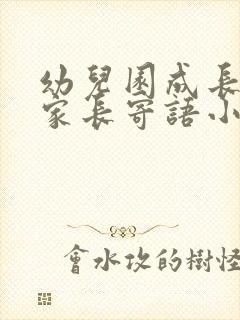 幼兒園成長
家長寄語小
會水攻的樹怪